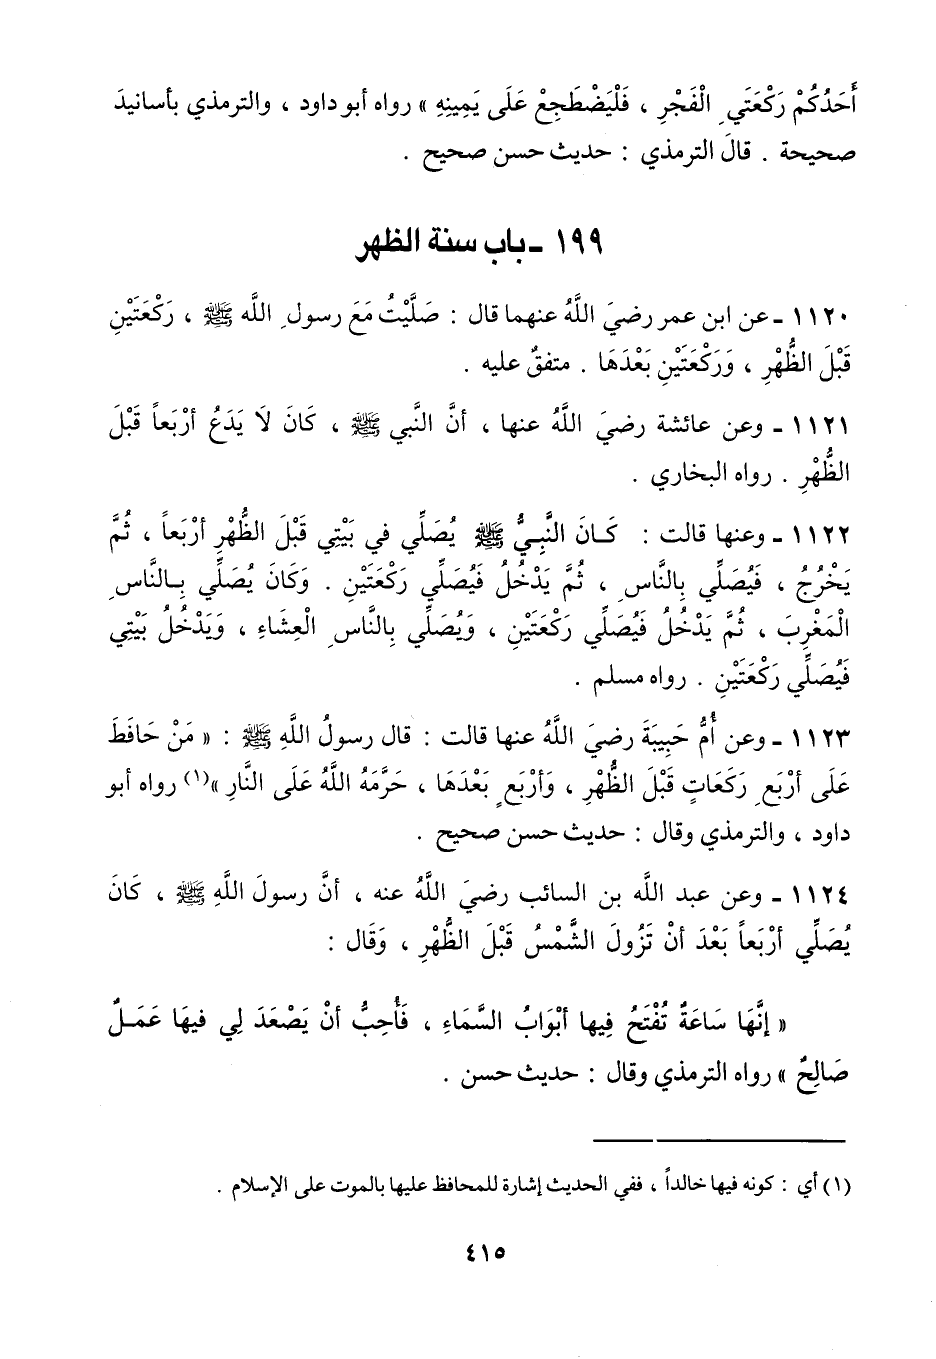 أَحَدُكُمْ رَكْعَتَيِ الْفَجْرِ ، فَلْيَضْطَجِعْ عَلَى يَمِينِهِ » رواه أبو داود ، والترمذي بأسانيدَ
صحيحة . قالَ الترمذي : حديث حسن صحيح .
١٩٩ - باب سنة الظهر
١١٢٠ - عن ابن عمر رضيَ اللَّهُ عنهما قال : صَلَّيْتُ مَعَ رسولِ الله ﷺ ، رَكْعَتَيْنِ
قَبْلَ الظُّهْرِ ، وَرَكْعَتَيْنِ بَعْدَهَا . متفقٌ عليه .
١١٢١ - وعن عائشة رضيَ اللَّهُ عنها ، أنَّ النَّبي ﷺ ، كَانَ لَا يَدَعُ أرْبَعاً قَبْلَ
الظُّهْرِ . رواه البخاري .
١١٢٢ - وعنها قالت : كَـانَ النَّبِيُّ ﷺ يُصَلِّي في بَيْتِي قَبْلَ الظُّهْرِ أرْبَعاً ، ثُمَّ
يَخْرُجُ ، فَيُصَلِّي بِالنَّاسِ ، ثُمَّ يَدْخُلُ فَيُصَلِّي رَكْعَتَيْنِ . وَكَانَ يُصَلِّي بِـالنَّاسِ
الْمَغْرِبَ ، ثُمَّ يَدْخُلُ فَيُصَلِّي رَكْعَتَيْنِ ، وَيُصَلِّي بِالنَّاسِ الْعِشَاءِ ، وَيَدْخُلُ بَيْتِي
فَيُصَلِّي رَكْعَتَيْنِ . رواه مسلم .
١١٢٣ - وعن أُمِّ حَبِيبَةَ رضيَ اللَّهُ عنها قالت : قال رسولُ اللَّهِ ﷺ : « مَنْ حَافَظَ
عَلَى أرْبَعِ رَكَعَاتٍ قَبْلَ الظُّهْرِ ، وَأرْبَعٍ بَعْدَهَا ، حَرَّمَهُ اللَّهُ عَلَى النَّارِ »(١) رواه أبو
داود ، والترمذي وقال : حديث حسن صحيح .
١١٢٤ - وعن عبد اللَّه بن السائب رضيَ اللَّهُ عنه ، أنَّ رسولَ اللَّهِ ﷺ ، كَانَ
يُصَلِّي أرْبَعاً بَعْدَ أنْ تَزُولَ الشَّمْسُ قَبْلَ الظُّهْرِ ، وَقَال :
« إنَّهَا سَاعَةٌ تُفْتَحُ فِيها أبْوَابُ السَّمَاءِ ، فَأُحِبُّ أنْ يَصْعَدَ لِي فيهَا عَمَـلٌ
صَالِحٌ » رواه الترمذي وقال : حديث حسن .
(١) أي : كونه فيها خالداً ، ففي الحديث إشارة للمحافظ عليها بالموت على الإسلام .
٤١٥